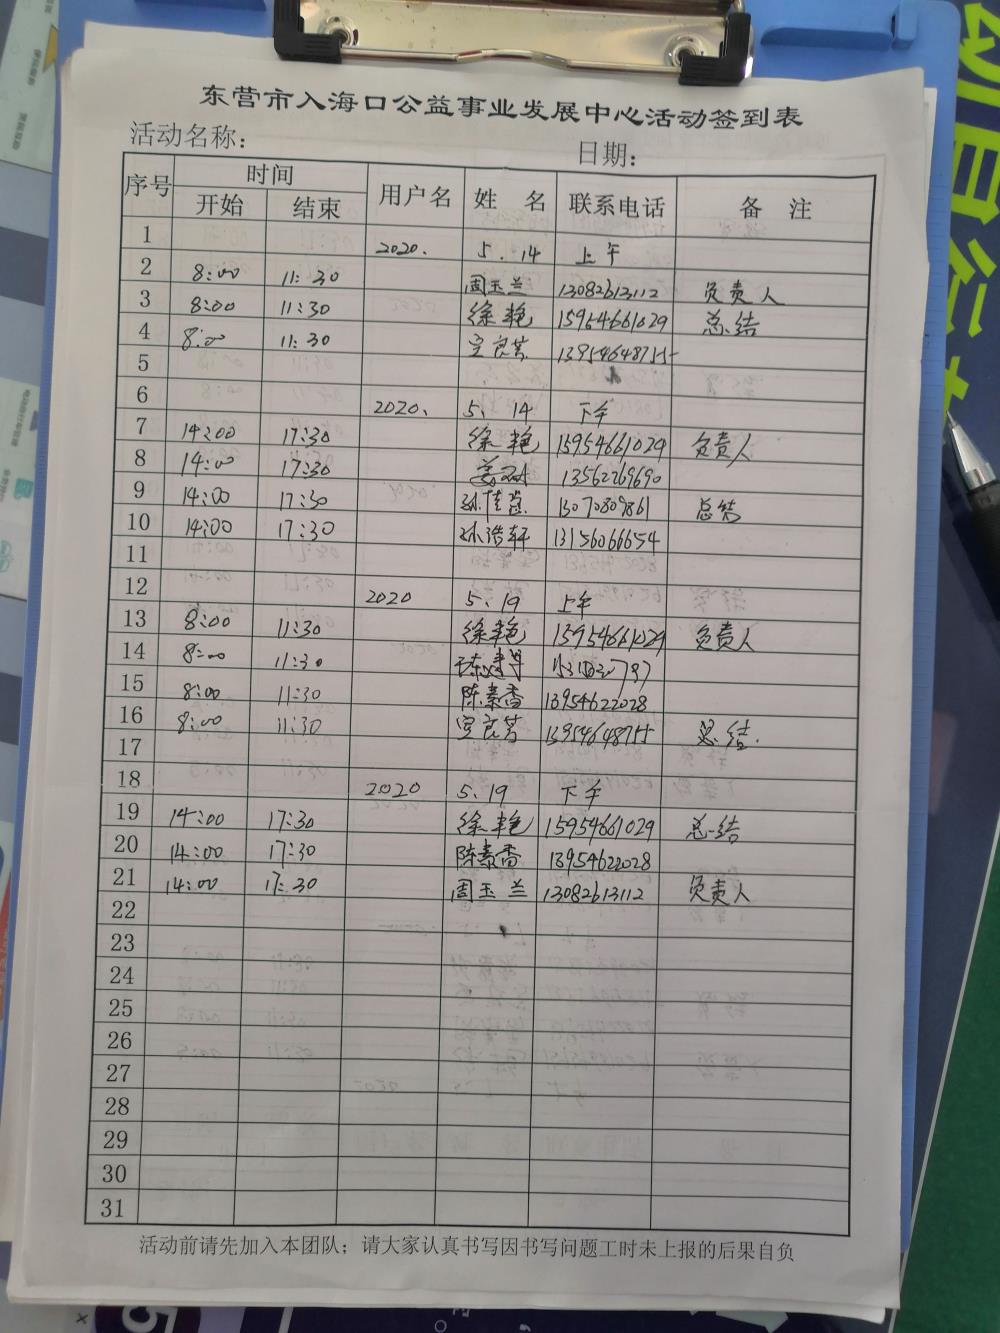 东营市入海口公益事业发展中心活动签到表
活动名称： 日期：
序号 时间 用户名 姓 名 联系电话 备 注
开始 结束
1 2020. 5. 14 上午
2 8:00 11:30 周玉兰 13082613112 负责人
3 8:00 11:30 徐艳 15954661029 总结
4 8:00 11:30 13954648755
5
6 2020. 5. 14 下午
7 14:00 17:30 徐艳 15954661029 负责人
8 14:00 17:30 13562269690
9 14:00 17:30 13070809861 总结
10 14:00 17:30 孙浩轩 13156066654
11
12 2020 5. 19 上午
13 8:00 11:30 徐艳 15954661029 负责人
14 8:00 11:30
15 8:00 11:30 陈素香 13954622028
16 8:00 11:30 13954648755 总结.
17
18 2020 5. 19 下午
19 14:00 17:30 徐艳 15954661029 总结
20 14:00 17:30 陈素香 13954622028
21 14:00 17:30 周玉兰 13082613112 负责人
22
23
24
25
26
27
28
29
30
31
活动前请先加入本团队；请大家认真书写因书写问题工时未上报的后果自负